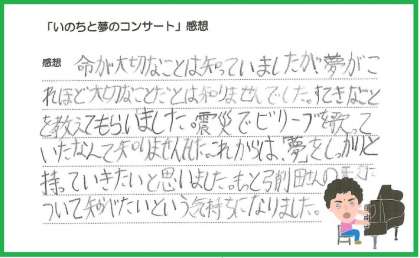 「いのちと夢のコンサート」感想
感想 命が大切なことは知っていましたが、夢がこ
れほど大切なことだとは知りませんでした。すてきなこと
を教えてもらいました。震災でビリーブを歌って
いたなんて知りませんでした。これからは、夢をしっかりと
持っていきたいと思いました。もっと弓削田さんの
ついて
たいという気持ちになりました。